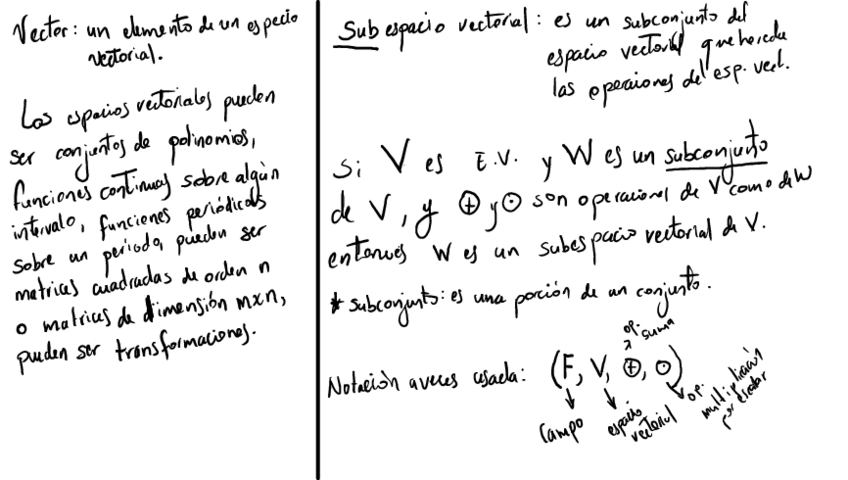 Vector: un elemento de un espacio
vectorial.
Los espacios vectoriales pueden
ser conjuntos de polinomios,
funciones continuas sobre algún
intervalo, funciones periódicas
sobre un período, pueden ser
matrices cuadradas de orden n
o matrices de dimensión mxn,
pueden ser transformaciones.
Subespacio vectorial: es un subconjunto del
espacio vectorial que hereda
las operaciones del esp. vect.
Si V es E.V. y W es un subconjunto
de V, y ⊕ y ⊙ son operacional de V como de W
entonces W es un subespacio vectorial de V.
* subconjunto: es una porción de un conjunto.
op.
suma
Notación a veces usada: (F, V, ⊕, ⊙)
Campo
espacio
vectorial
op.
multiplicación
por escalar